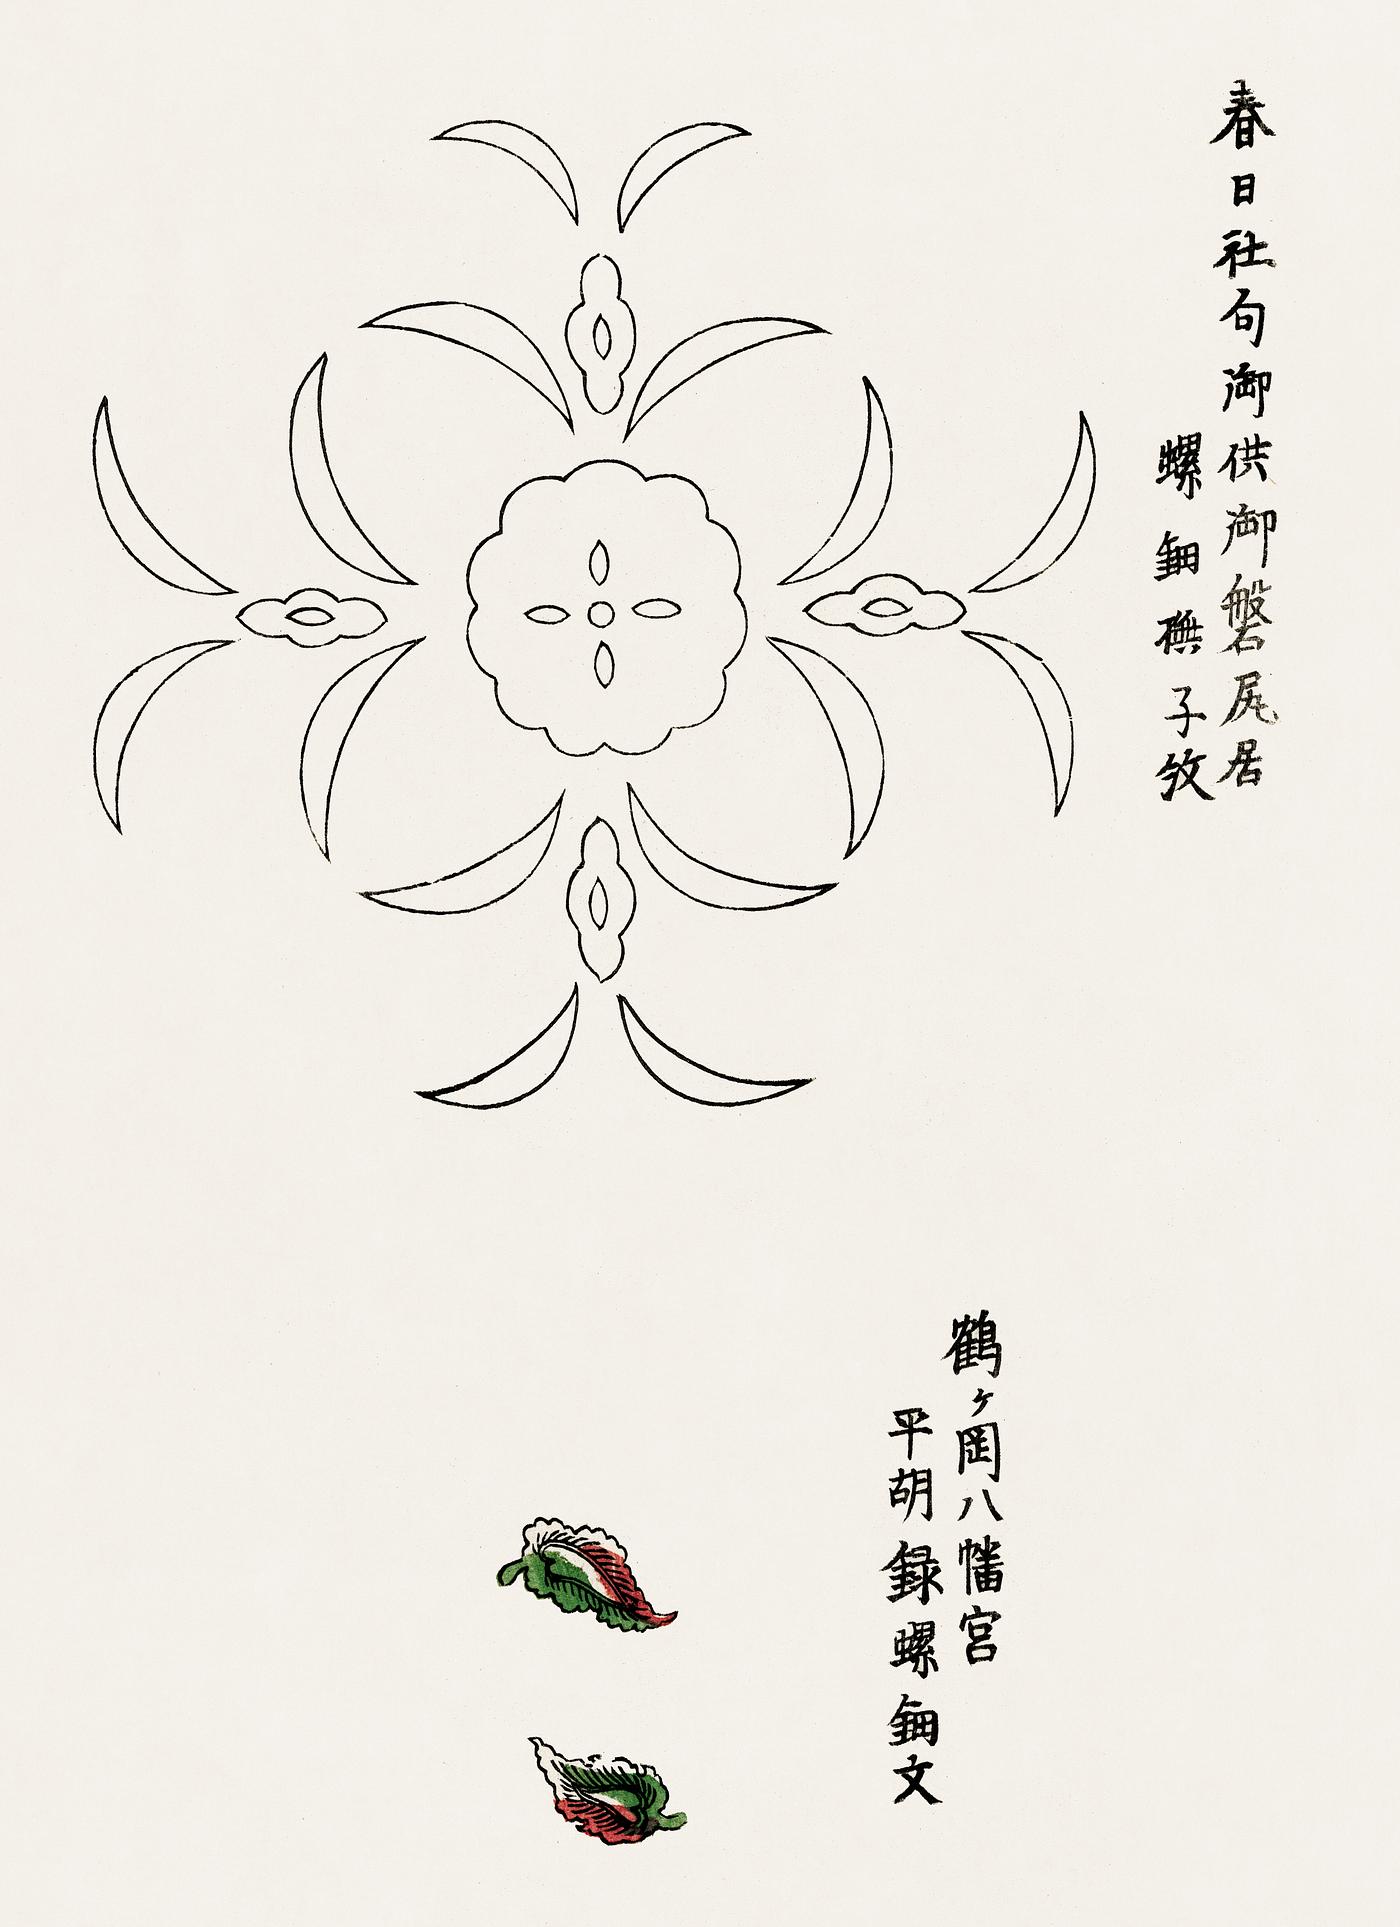 春日社旬御供御盤尻居
螺鈿撫子文
鶴ヶ岡八幡宮
平胡録螺鈿文